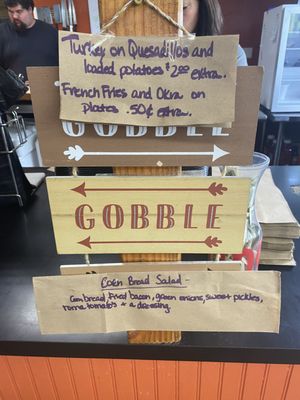 Turkey on Quesadillas and
loaded potatoes $2.00 extra.
French Fries and Okra on
Plates .50¢ extra.
GOBBLE
GOBBLE
Corn Bread Salad -
Cornbread, fried bacon, green onions, sweet pickles,
roma tomato's + a dressing